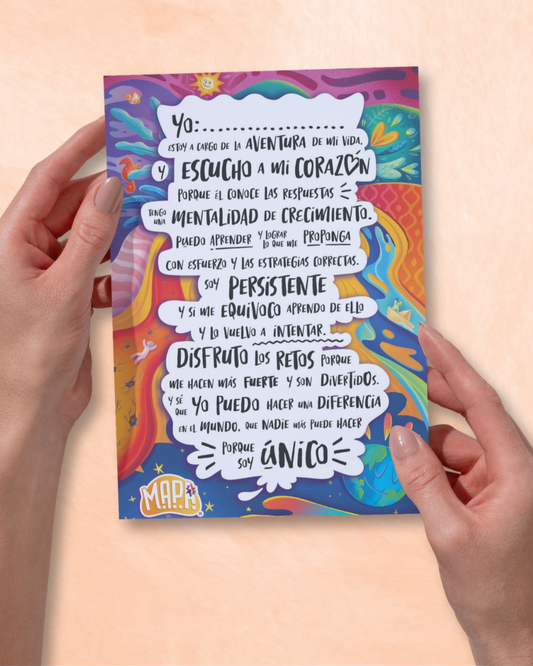 Yo:........................
ESTOY A CARGO DE LA AVENTURA DE MI VIDA.
Y ESCUCHO A MI CORAZÓN
PORQUE ÉL CONOCE LAS RESPUESTAS
TENGO UNA MENTALIDAD DE CRECIMIENTO.
PUEDO APRENDER Y LOGRAR LO QUE ME PROPONGA
CON ESFUERZO Y LAS ESTRATEGIAS CORRECTAS.
SOY PERSISTENTE
Y SI ME EQUIVOCO APRENDO DE ELLO
Y LO VUELVO A INTENTAR.
DISFRUTO LOS RETOS PORQUE
ME HACEN MÁS FUERTE Y SON DIVERTIDOS.
Y SÉ QUE YO PUEDO HACER UNA DIFERENCIA
EN EL MUNDO, QUE NADIE MÁS PUEDE HACER
PORQUE SOY ÚNICO
M.A.P.A